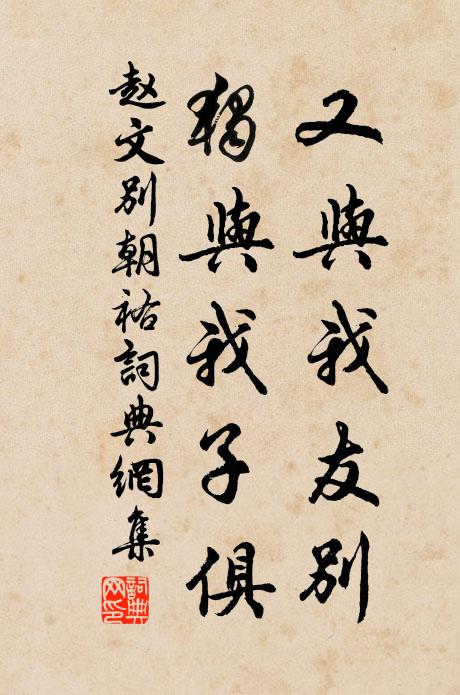 又與我友别
獨與我子俱
赵文别朝祐詞典網集
詞典網印